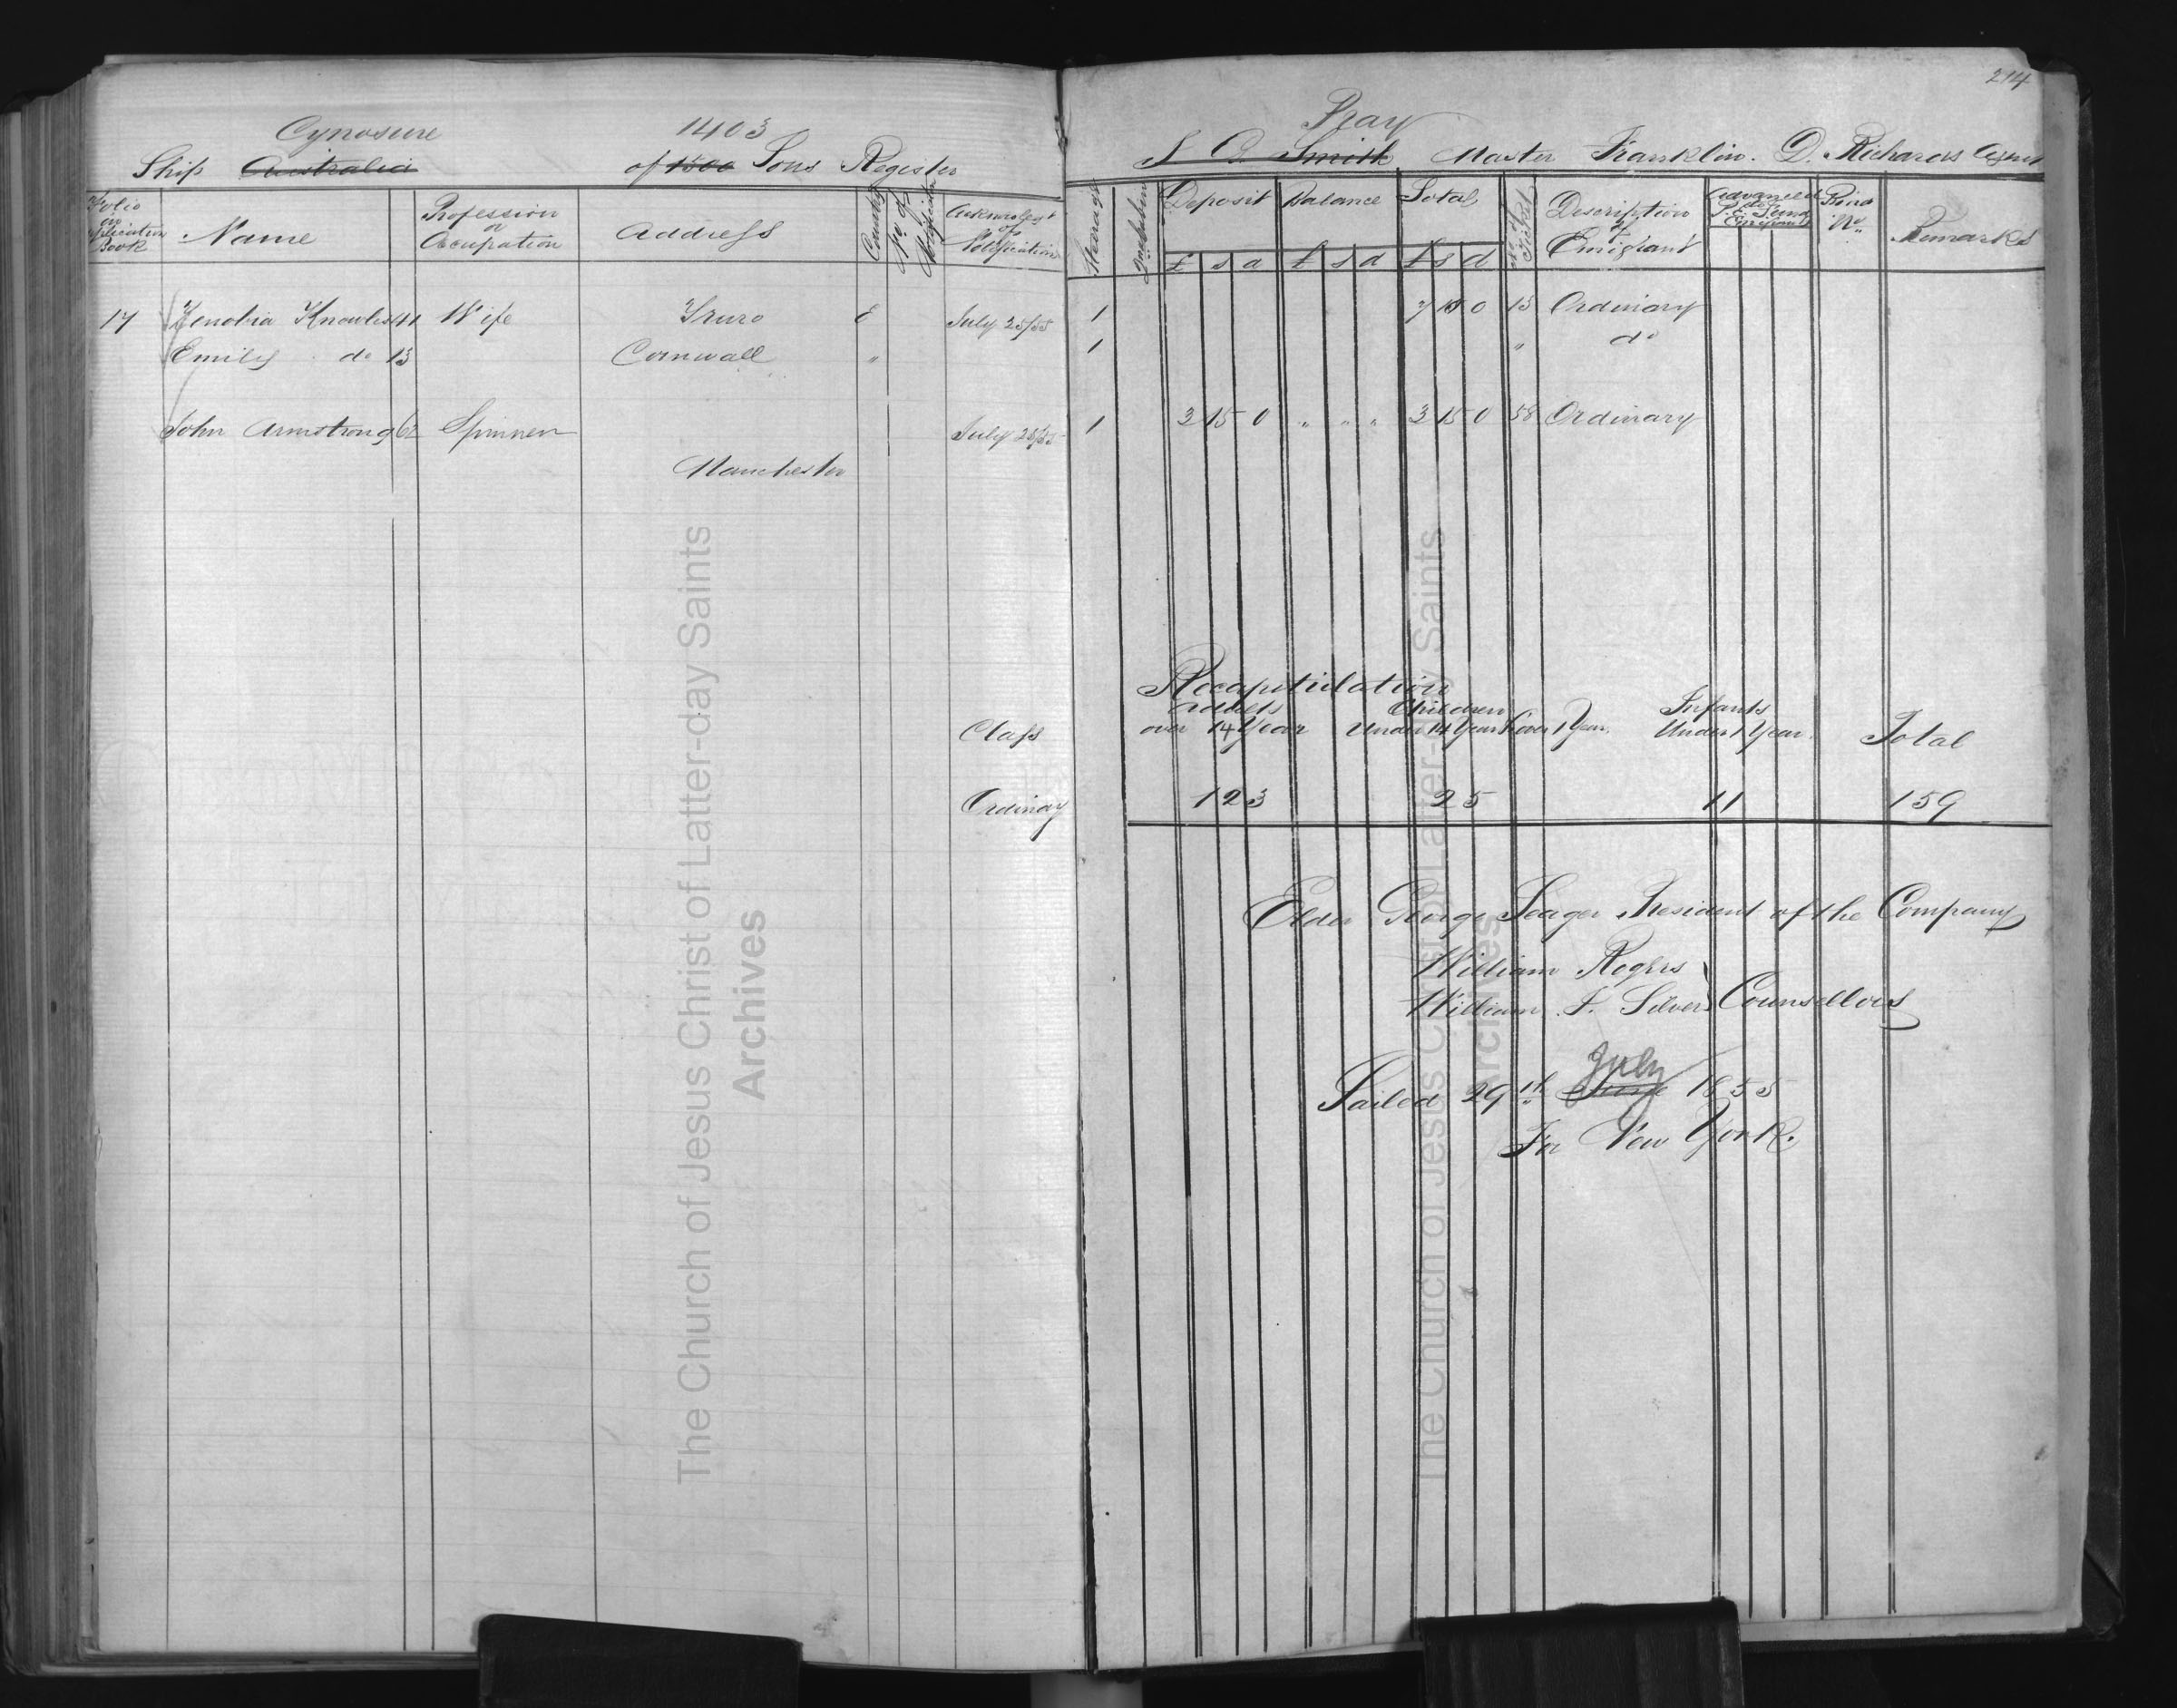 Cynosure 1403
Ship Australia of 1300 Tons Register
Folio in Application Book Name Profession or Occupation Address Country No. of Notification Acknowledgt of Notification
17 Zenobia Knowles 41 Wife Truro E July 25/55
Emily do 13 Cornwall "
John Armstrong 62 Spinner July 28/55
Manchester
Class
Ordinay
214
Pray
S Smith Master Franklin. D. Richards Agent
Steerage Deposit Balance Total No. of Ticket Description of Emigrant Advanced do P. E. Fund Emigrants Bond No. Remarks
£ s d £ s d £ s d
1 0 13 Ordinary
1 " do
1 3 15 0 " " " 3 15 0 58 Ordinary
Recapitulation
Adults Children Infants
over 14 Year Under 14 Year & over 1 Year. Under 1 Year. Total
123 25 11 159
Elder George Seager President of the Company
William Rogers
William J. Silver Counsellors
July
Sailed 29th June 1855
For New York.
The Church of Jesus Christ of Latter-day Saints
Archives
The Church of Jesus Christ of Latter-day Saints
Archives